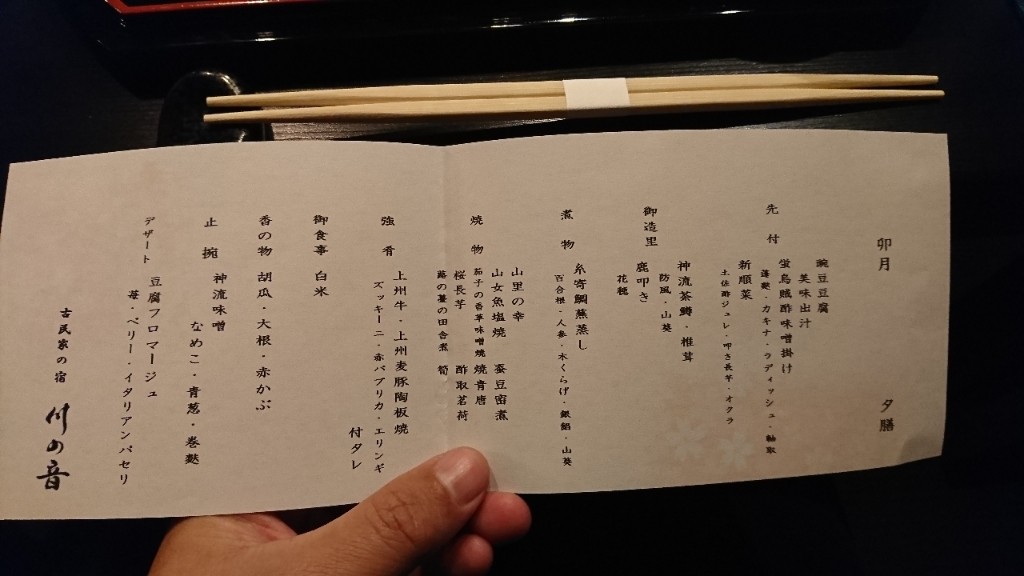 卯月 夕膳
先付 豌豆豆腐
美味出汁
蛍烏賊酢味噌掛け
蓬麩・カキナ・ラディッシュ・軸取
新順菜
土佐酢ジュレ・叩き長芋・オクラ
御造里 神流茶鱒・椎茸
防風・山葵
鹿叩き
花穂
煮物 糸寄鯛蕪蒸し
百合根・人参・木くらげ・銀餡・山葵
焼物 山里の幸
山女魚塩焼 蚕豆蜜煮
茄子の香草味噌焼 焼青唐
桜長芋 酢取茗荷
蕗の薹の田舎煮 筍
強肴 上州牛・上州麦豚陶板焼
ズッキーニ・赤パプリカ・エリンギ
付タレ
御食事 白米
香の物 胡瓜・大根・赤かぶ
止椀 神流味噌
なめこ・青葱・巻麩
デザート 豆腐フロマージュ
苺・ベリー・イタリアンパセリ
古民家の宿 川の音